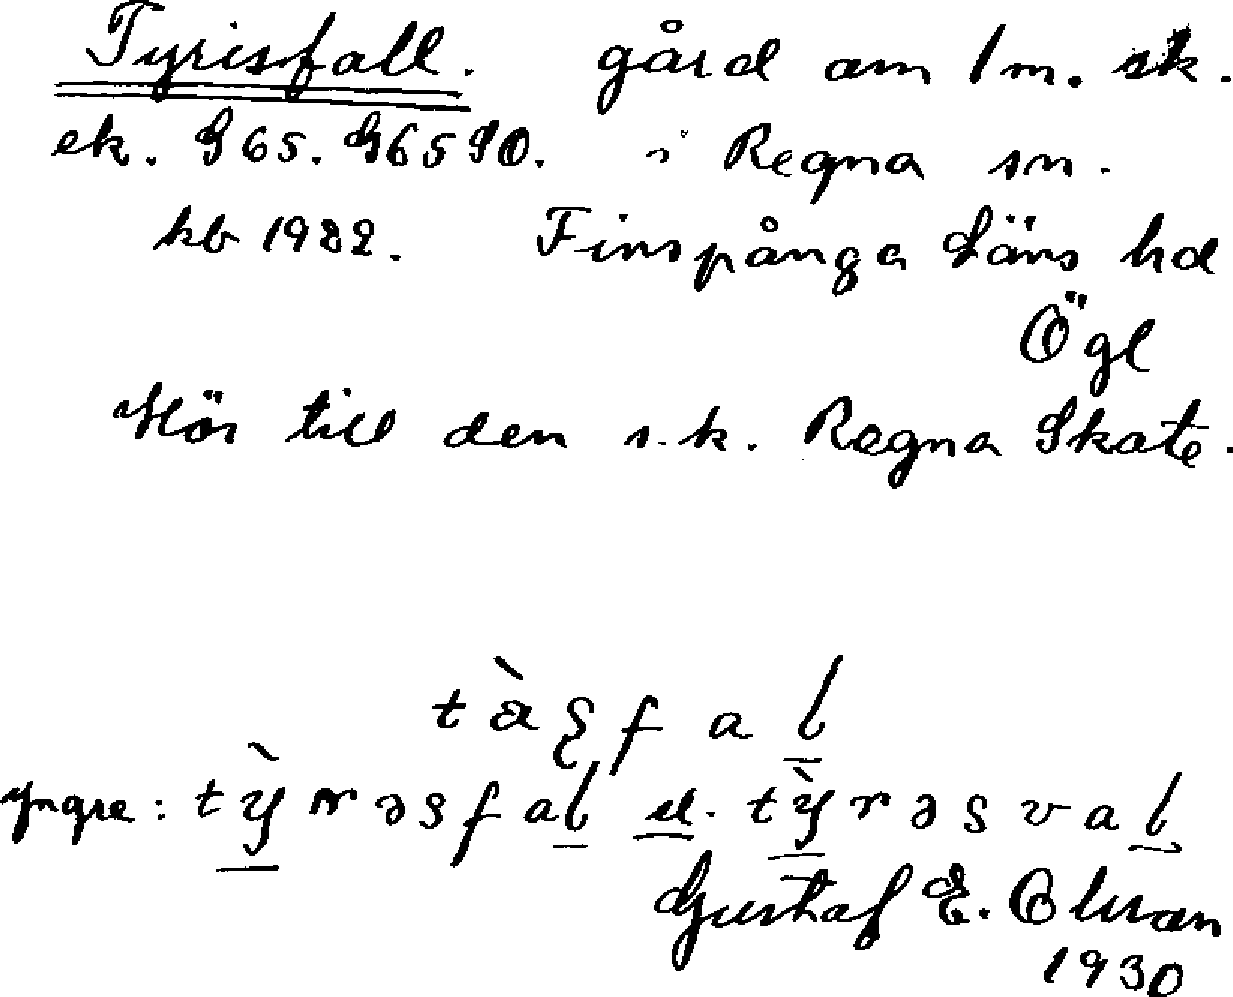 Tyrisfall. gård om 1 m. sk.
ek. G 65. G 65 90. i Regna sn.
kb 1922. Finspånga Läns hd
Ögl
Hör till den s.k. Regna Skate.
tàʂfal
yngre: tỳrəsfal el. tỳrəsval
Gustaf E. Olsson
1930